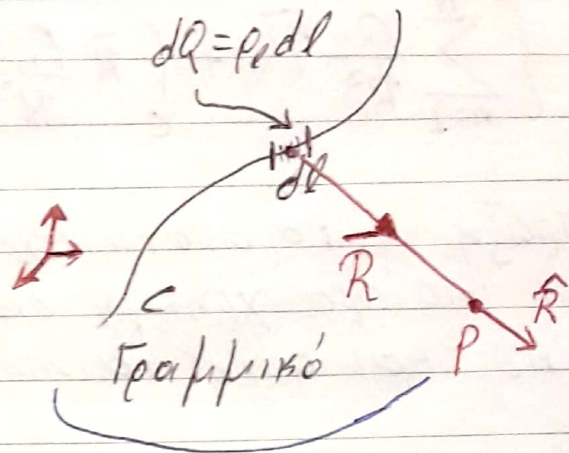 dQ = ρₗ dl
dl
R
R̂
P
C
Γραμμικό